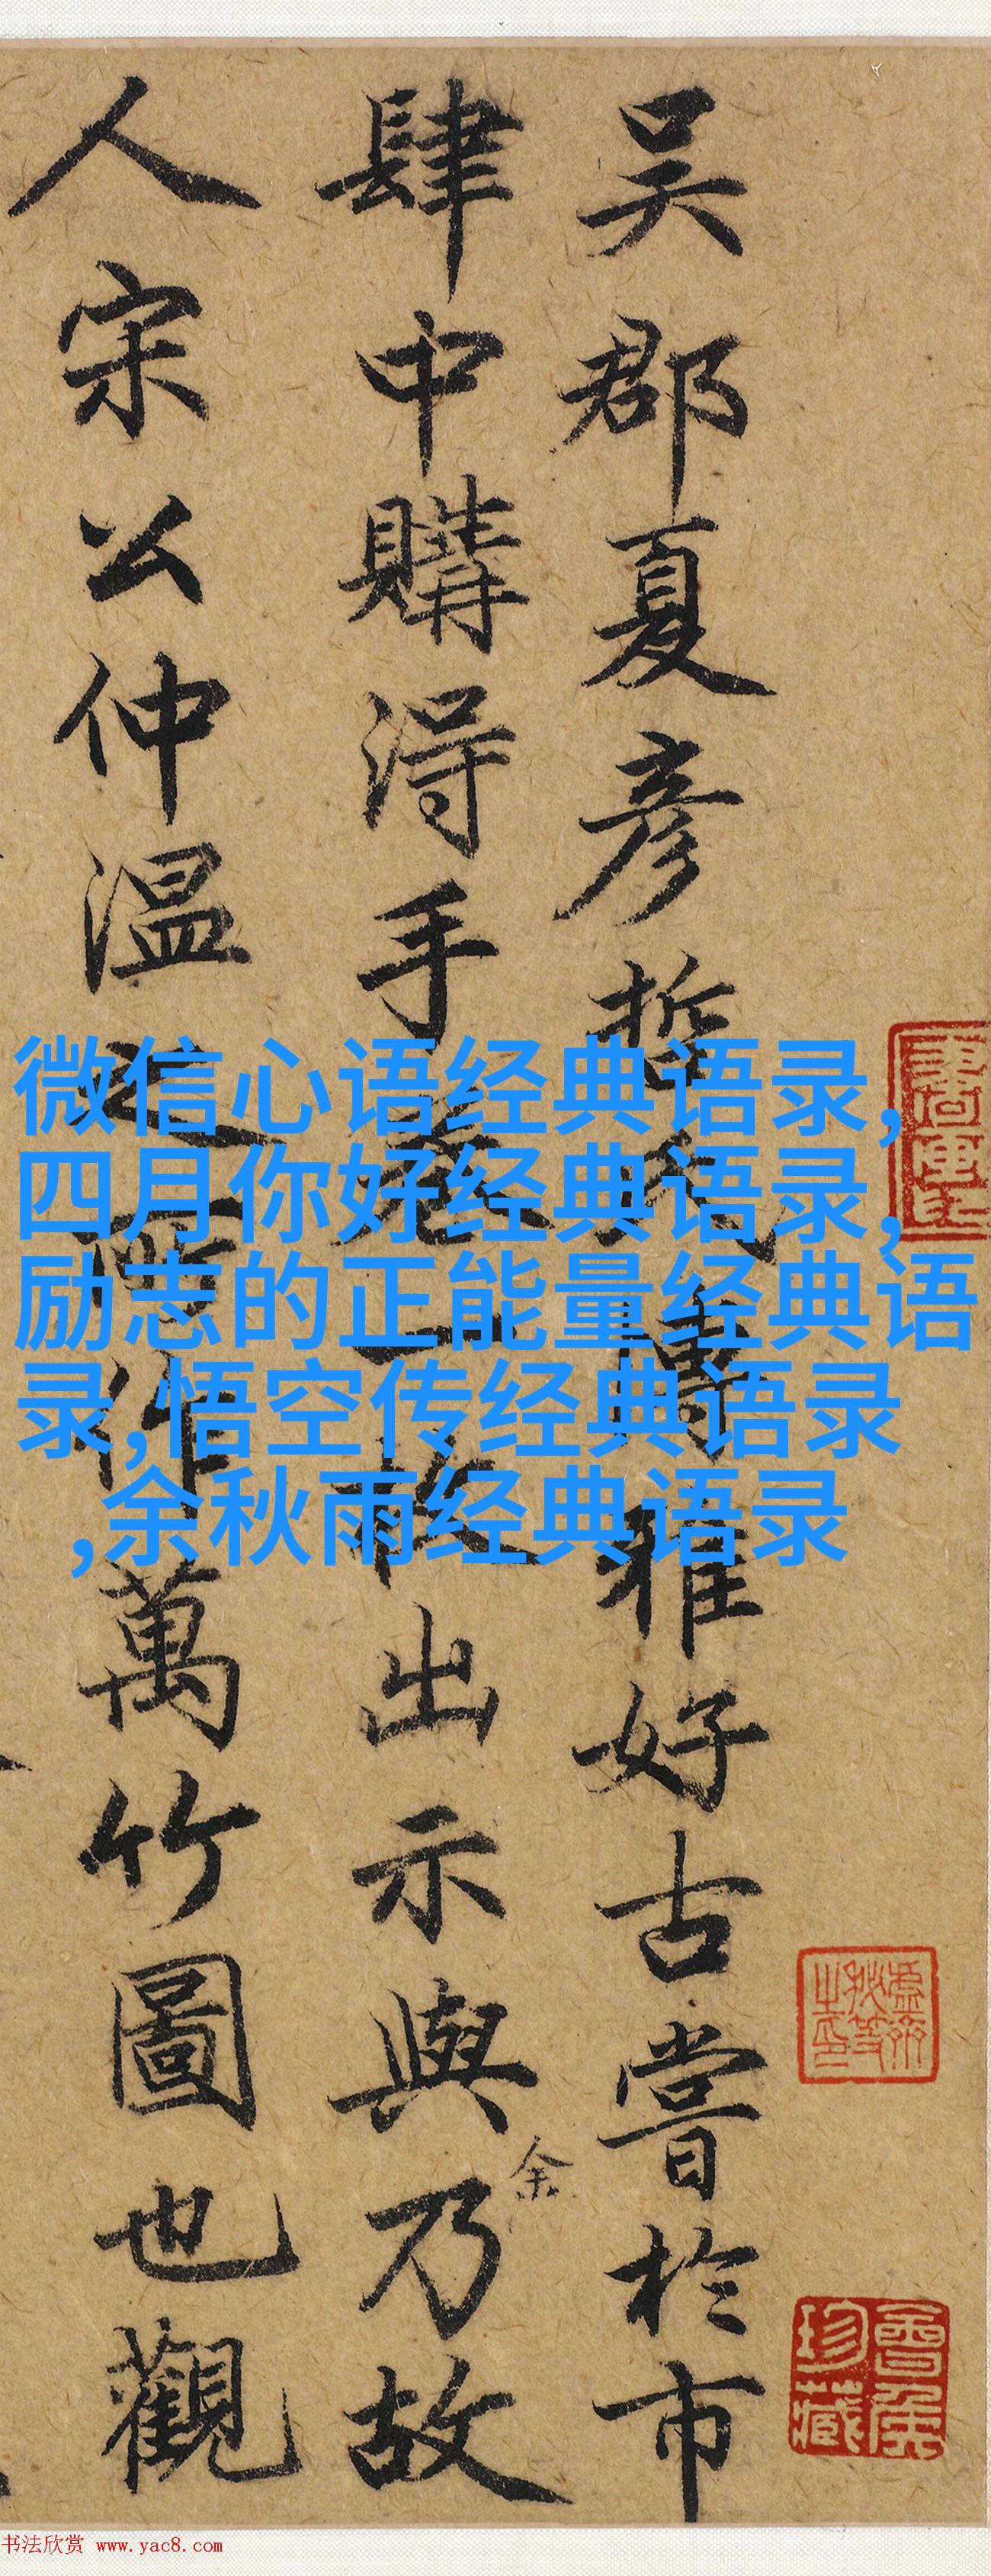 吴郡夏彦哲氏博雅好古嘗於市
肆中購得手卷一出示與乃故
余
人宋公仲温之所作萬竹圖也觀
微信心语经典语录,
四月你好经典语录,
励志的正能量经典语
录,悟空传经典语录
,余秋雨经典语录
珍藏
书法欣赏 www.yac8.com